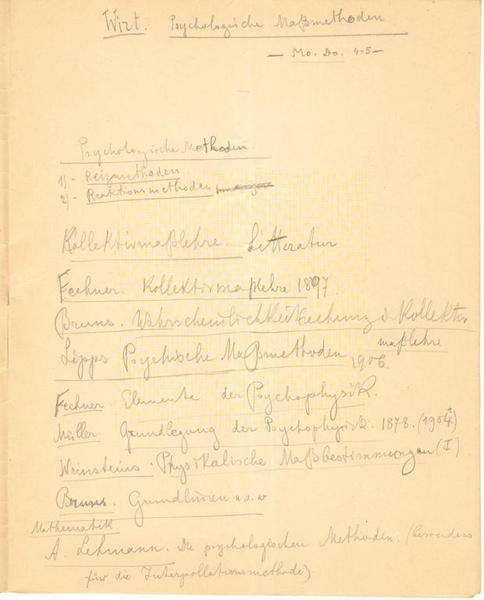 Wirt. Psychologische Maßmethoden
— Mo. Do. 4-5 —
Psychologische Methoden
1) - Reizmethoden
2) - Reaktionsmethoden
Kollektivmaßlehre Litteratur
Fechner. Kollektivmaßlehre 1897.
Bruns. Wahrscheinlichkeitsrechnung d. Kollektiv
maßlehre
Lipps Psychische Maßmethoden 1906.
Fechner Elemente der Psychophysik.
Müller. Grundlegung der Psychophysik. 1878. (1904)
Weinsteins. Physikalische Maßbestimmungen (I)
Bruns. Grundlinien u.s.w.
Mathematik
A. Lehmann. Die psychologischen Methoden. (besonders
für die Interpollationsmethode)